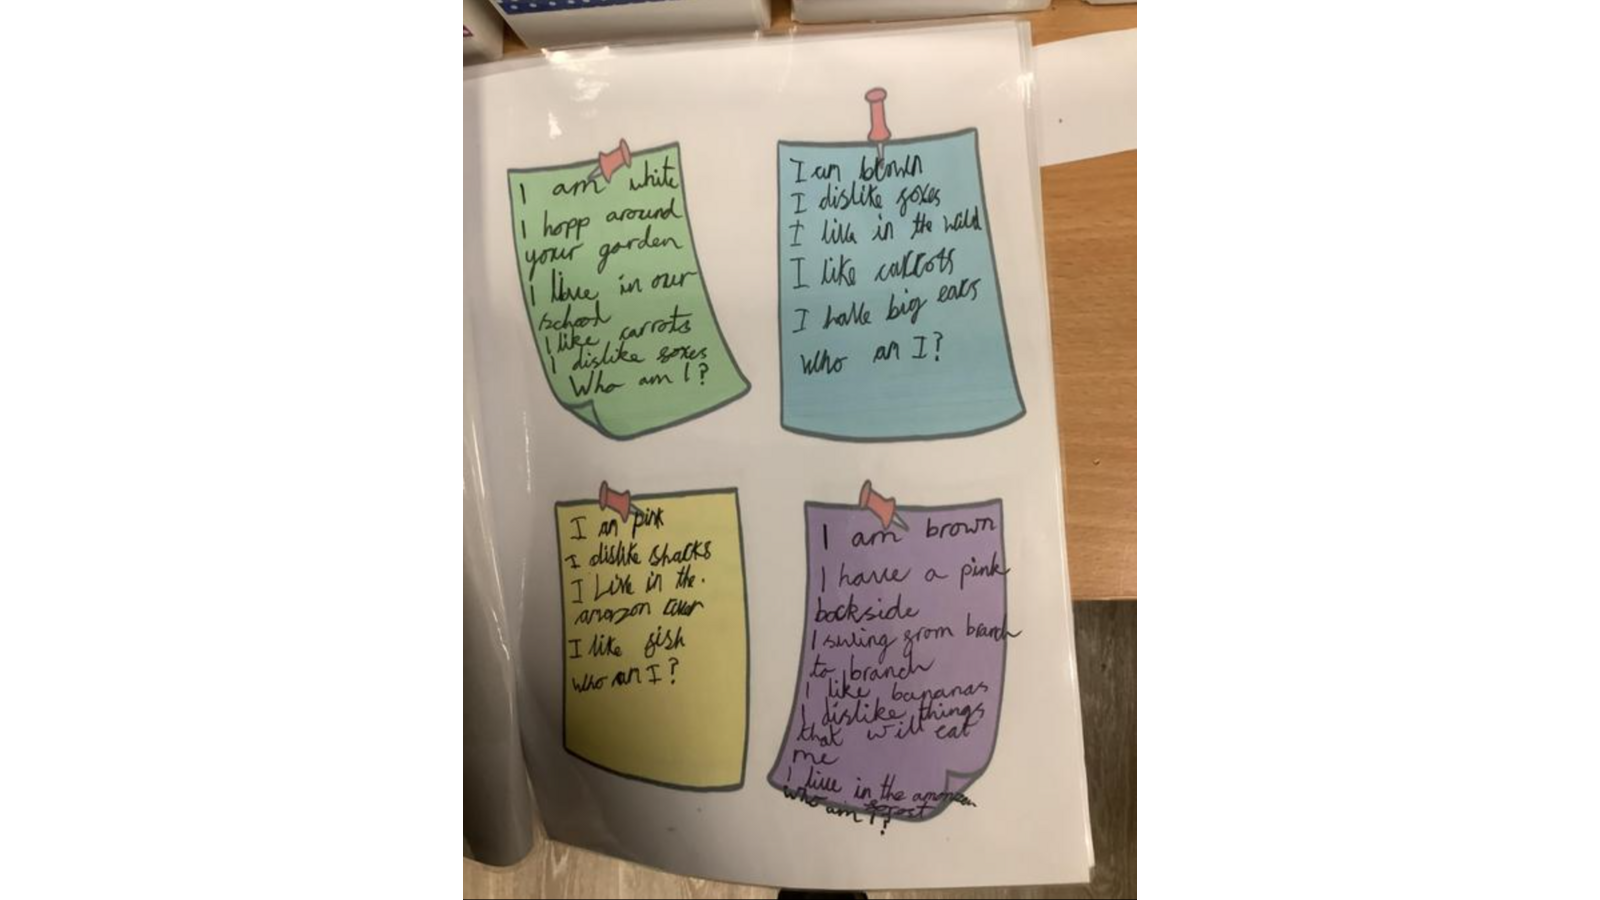 I am white
I hopp around
your garden
I live in our
school
I like carrots
I dislike foxes
Who am I?
I am brown
I dislike foxes
I live in the wild
I like carrots
I have big ears
Who am I?
I am pink
I dislike sharks
I Live in the.
amazon river
I like fish
who am I?
I am brown
I have a pink
backside
I swing from branch
to branch
I like bananas
I dislike things
that will eat
me
I live in the amonzon
forost
who am I?